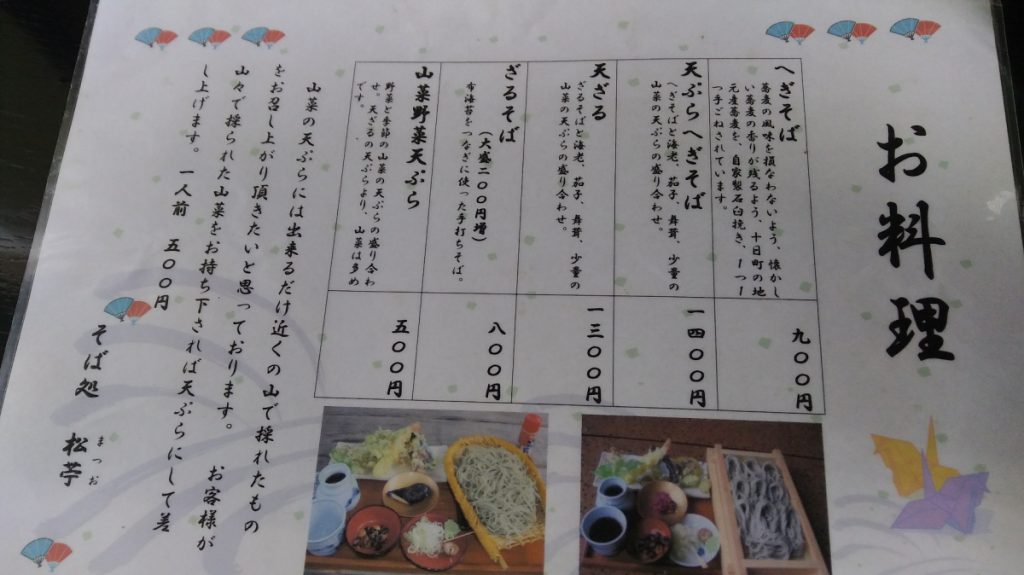 お料理
へぎそば
蕎麦の風味を損なわないよう、懐かし
い蕎麦の香りが残るよう、十日町の地
元産蕎麦を、自家製石臼挽き、1つ1
つ手ごねされています。
九〇〇円
天ぷらへぎそば
へぎそばと海老、茄子、舞茸、少量の
山菜の天ぷらの盛り合わせ。
一四〇〇円
天ざる
ざるそばと海老、茄子、舞茸、少量の
山菜の天ぷらの盛り合わせ。
一三〇〇円
ざるそば
(大盛二〇〇円増)
布海苔をつなぎに使った手打ちそば。
八〇〇円
山菜野菜天ぷら
野菜と季節の山菜の天ぷらの盛り合わ
せ。天ざるの天ぷらより、山菜は多め
です。
五〇〇円
山菜の天ぷらには出来るだけ近くの山で採れたもの
をお召し上がり頂きたいと思っております。 お客様が
山々で採られた山菜をお持ち下されば天ぷらにして差
し上げます。一人前 五〇〇円
そば処 松苧
まつお